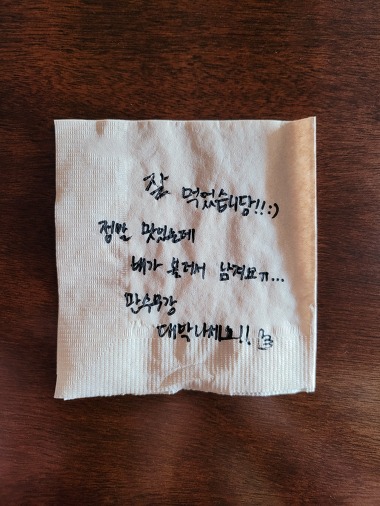 잘 먹었습니당!!:)
정말 맛있는데
배가 불러서 남겨요ㅠ...
만수무강
대박나세요!!